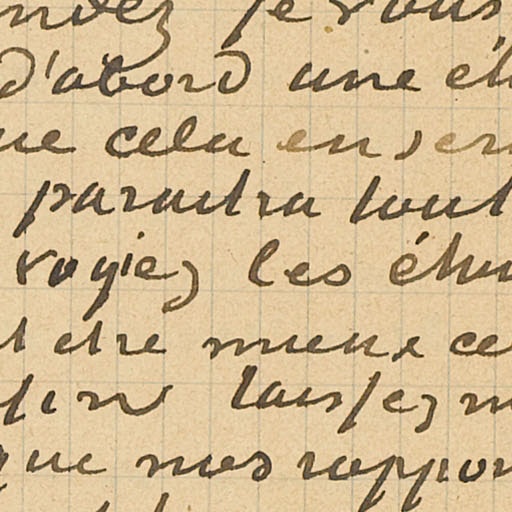 ndez je vous
d'abord une ét
ue cela en ser
paraitra tout
voyiez les étu
t etre mieux ce
laissez m
que mes rappor